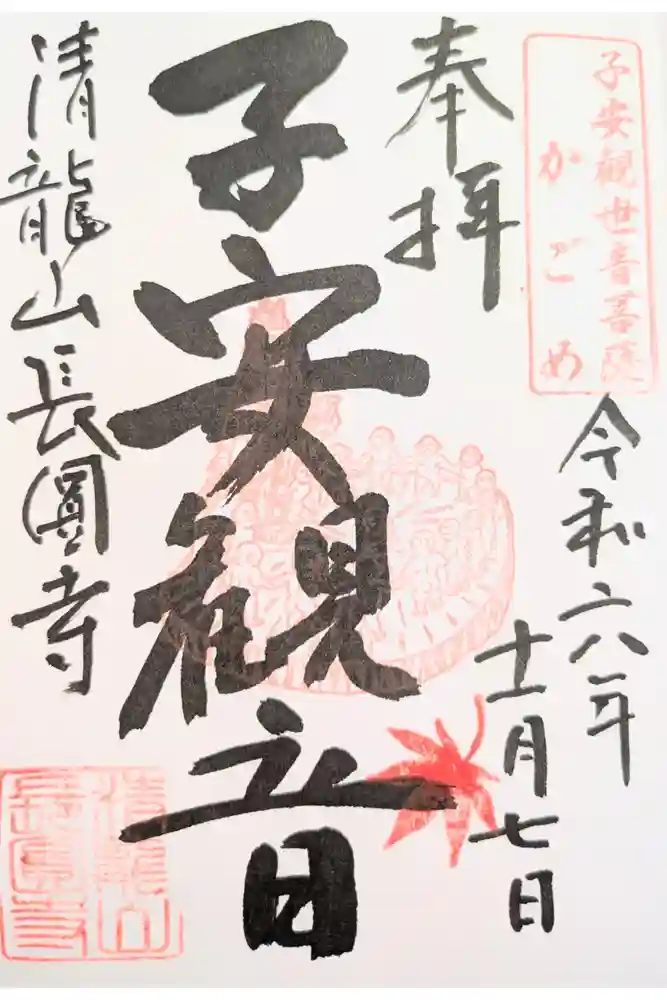 子安観世音菩薩
かごめ
奉拝
令和六年
十一月七日
子安観音
清龍山長圓寺
清龍山
長圓寺